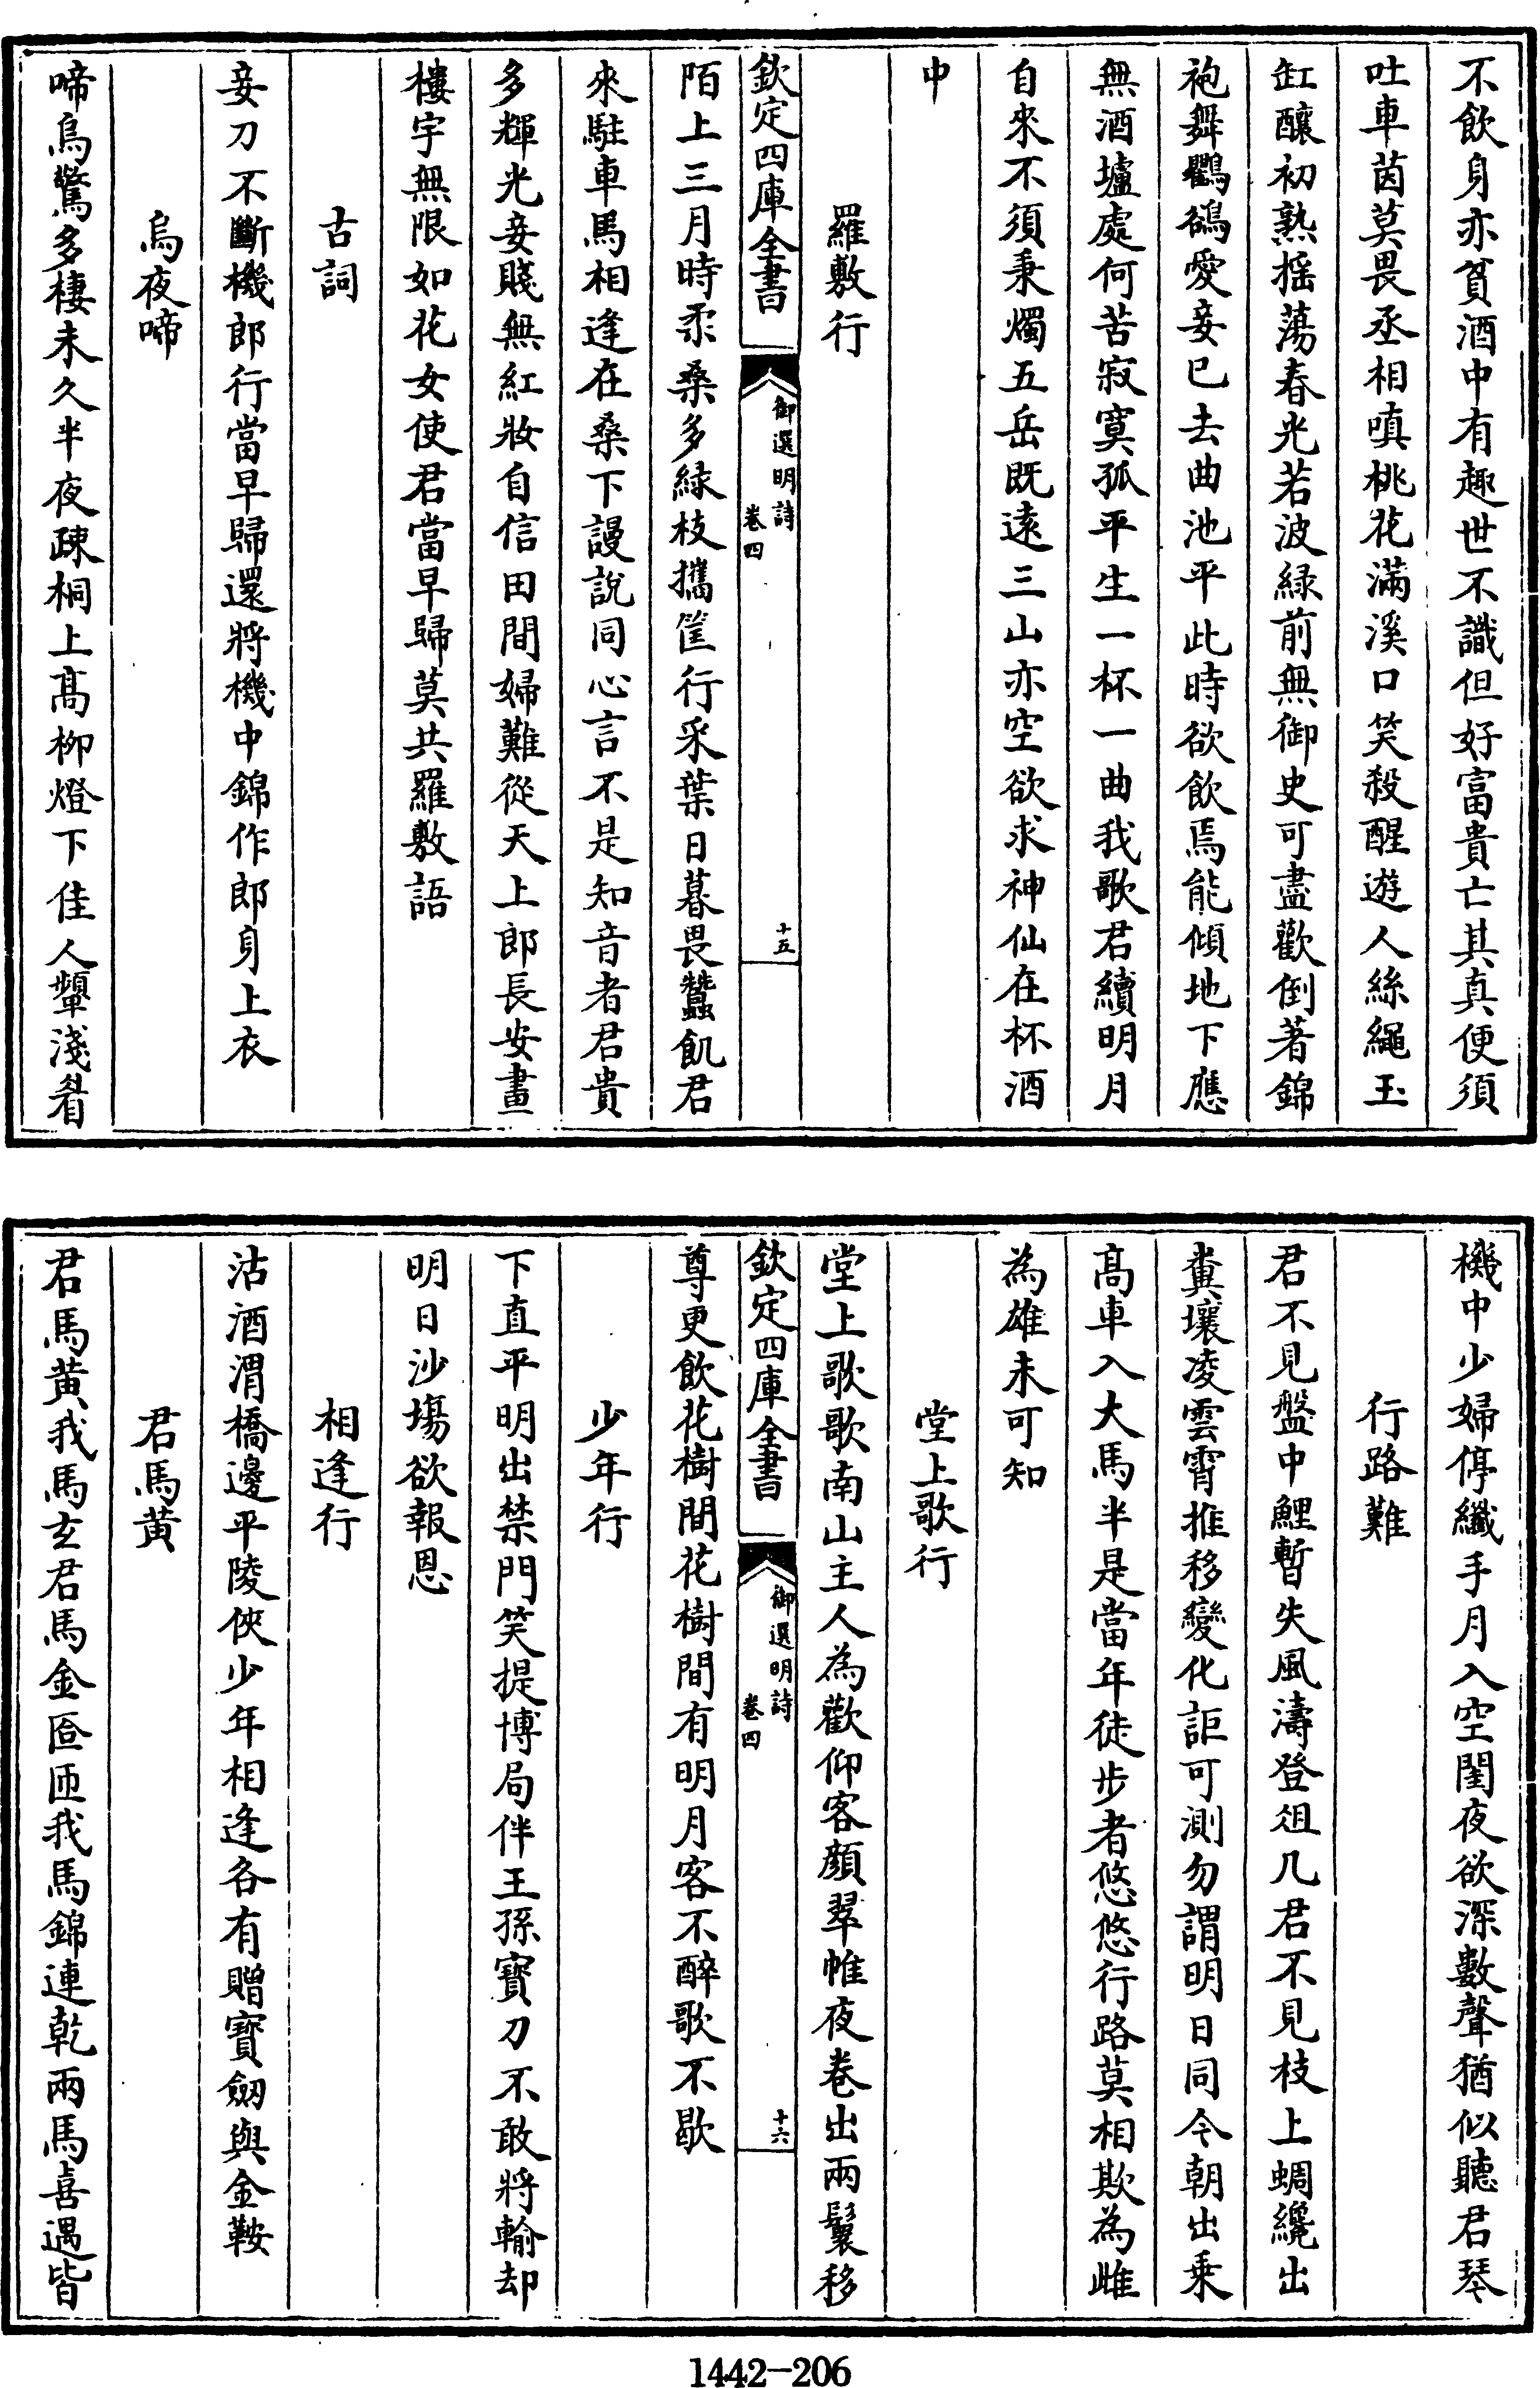 不飲身亦貧酒中有趣世不識但好富貴亡其真便須
吐車茵莫畏丞相嗔桃花滿溪口笑殺醒遊人絲繩玉
缸釀初熟揺蕩春光若波緑前無御史可盡歡倒著錦
袍舞鸜鵒愛妾已去曲池平此時欲飲焉能傾地下應
無酒壚處何苦寂寞孤平生一杯一曲我歌君續明月
自來不須秉燭五岳既遠三山亦空欲求神仙在杯酒
中
羅敷行
欽定四庫全書
御選明詩
卷四
十五
陌上三月時柔桑多緑枝攜筐行采葉日暮畏蠶飢君
來駐車馬相逢在桑下謾說同心言不是知音者君貴
多輝光妾賤無紅妝自信田間婦難從天上郎長安畫
樓宇無限如花女使君當早歸莫共羅敷語
古詞
妾刀不斷機郎行當早歸還將機中錦作郎身上衣
烏夜啼
啼烏驚多棲未久半夜疎桐上髙栁燈下佳人顰淺眉
機中少婦停纖手月入空閨夜欲深數聲猶似聽君琴
行路難
君不見盤中鯉暫失風濤登俎几君不見枝上蜩纔出
糞壤凌雲霄推移變化詎可測勿謂明日同今朝出乗
髙車入大馬半是當年徒步者悠悠行路莫相欺為雌
為雄未可知
堂上歌行
堂上歌歌南山主人為歡仰客顔翠帷夜巻出兩鬟移
欽定四庫全書
御選明詩
卷四
十六
尊更飲花樹間花樹間有明月客不醉歌不歇
少年行
下直平明出禁門笑提博局伴王孫寳刀不敢將輸却
明日沙塲欲報恩
相逢行
沽酒渭橋邊平陵俠少年相逢各有贈寳劒與金鞍
君馬黄
君馬黄我馬玄君馬金匼匝我馬錦連乾兩馬喜遇皆
1442-206